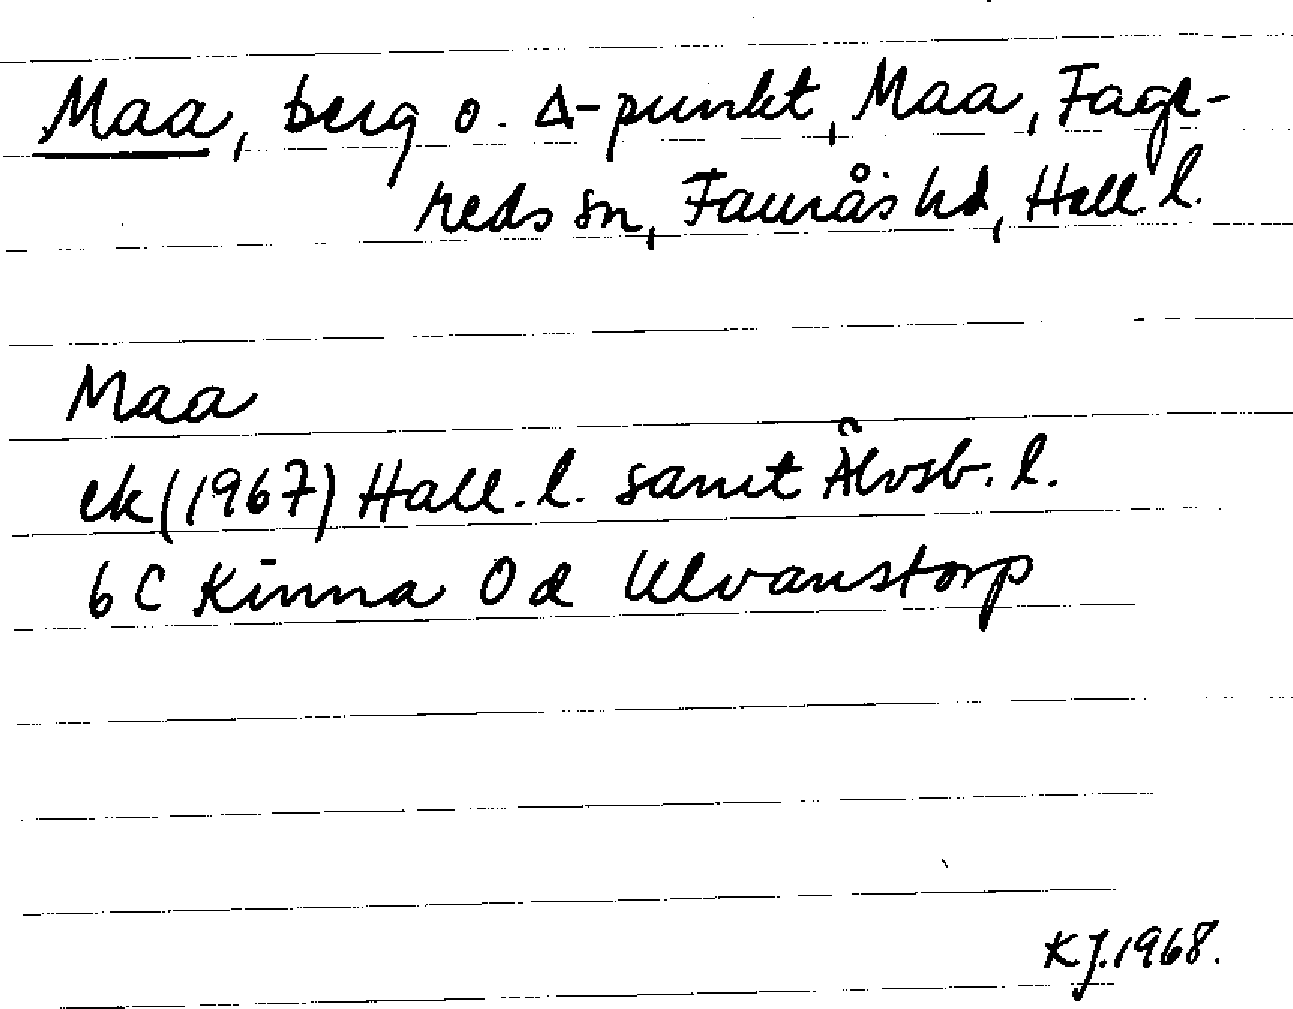 Maa, berg o. Δ-punkt, Maa, Fage-
reds sn, Faurås hd, Hall. l.
Maa
ek (1967) Hall. l. samt Älvsb. l.
6 C Kinna 0 d Ulvanstorp
KJ. 1968.